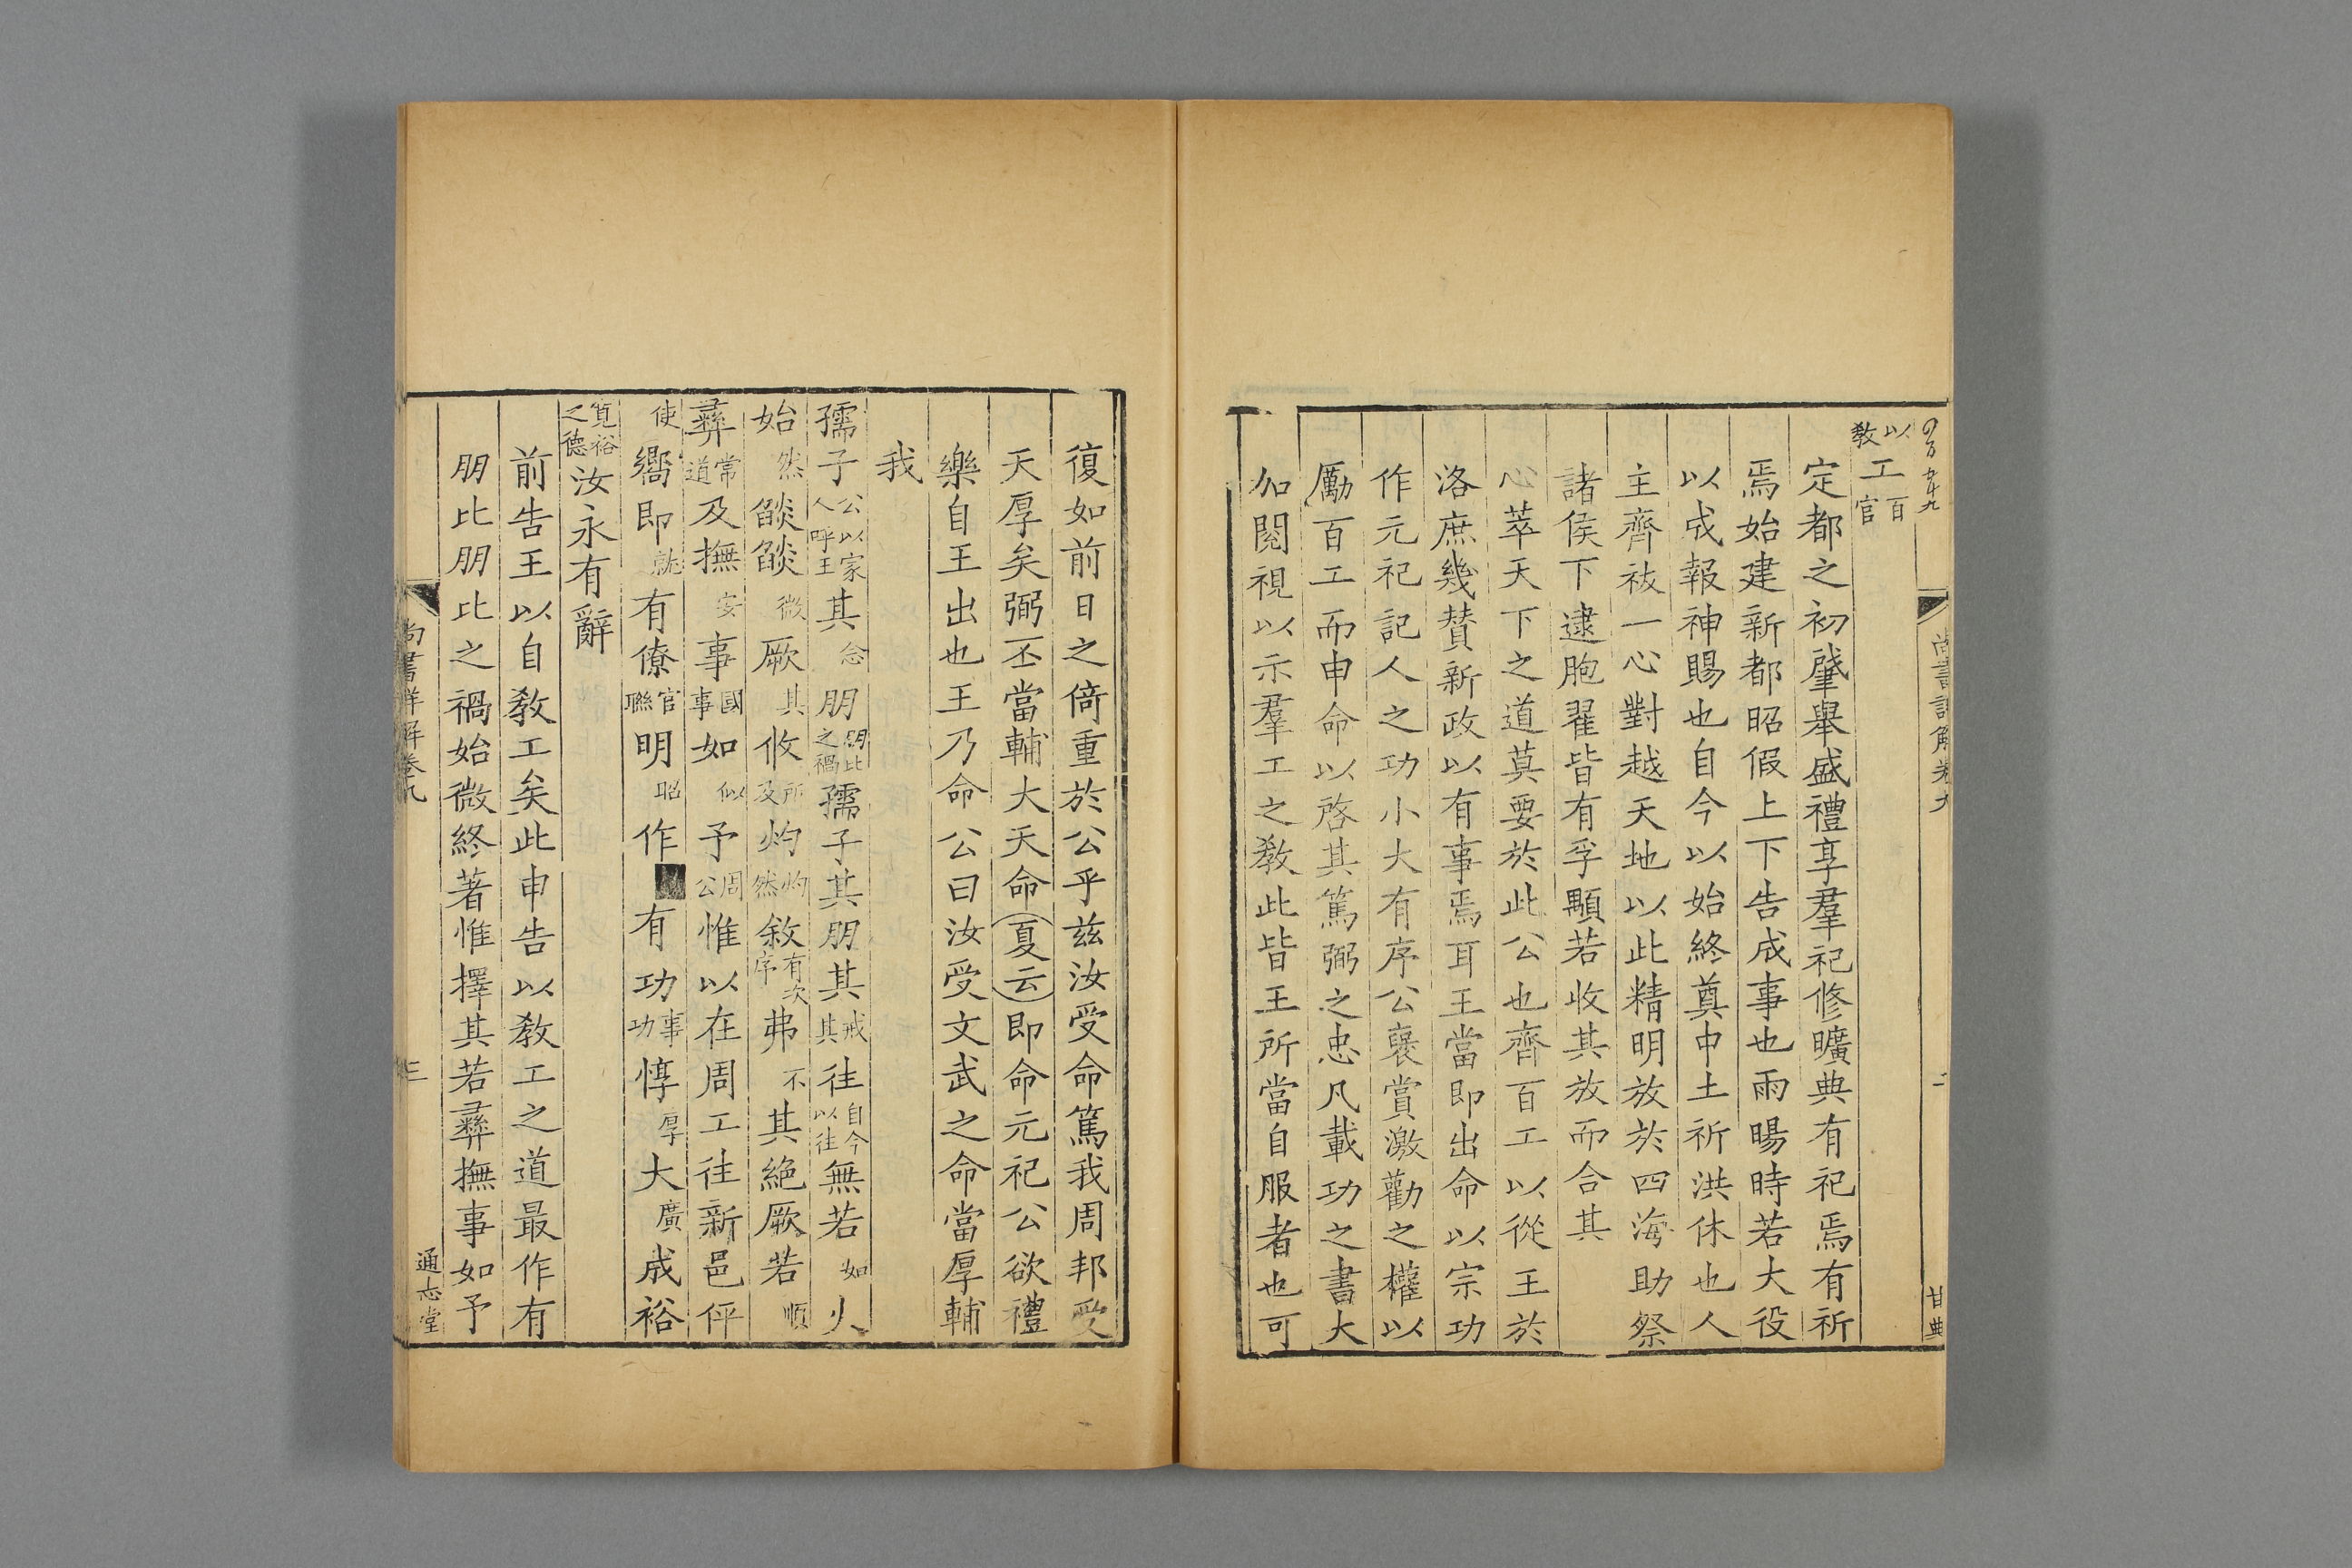 尚書詳解卷九
二
甘典
以教工百官
定都之初肇舉盛禮享羣祀修曠典有祀焉有祈
焉始建新都昭假上下告成事也雨暘時若大役
以成報神賜也自今以始終奠中土祈洪休也人
主齊祓一心對越天地以此精明放於四海助祭
諸侯下逮胞翟皆有孚顒若收其放而合其
心萃天下之道莫要於此公也齊百工以從王於
洛庶幾贊新政以有事焉耳王當即出命以宗功
作元祀記人之功小大有序公襃賞激勸之權以
厲百工而申命以啓其篤弼之忠凡載功之書大
加閱視以示羣工之教此皆王所當自服者也可
復如前日之倚重於公乎兹汝受命篤我周邦受
天厚矣弼丕當輔大天命夏云即命元祀公欲禮
樂自王出也王乃命公曰汝受文武之命當厚輔
我
孺子公以家人呼王其念朋朋比之禍孺子其朋其戒其往自今以往無若如火
始然燄燄微厥其攸所及灼灼然敘有次序弗不其絶厥若順
彝常道及撫安事國事如似予周公惟以在周工往新邑伻
使嚮即就有僚官聯明昭作有功事功惇厚大廣成裕
寛裕之德汝永有辭
前告王以自教工矣此申告以教工之道最作有
朋比朋比之禍始微終著惟擇其若彝撫事如予
尚書詳解卷九
三
通志堂